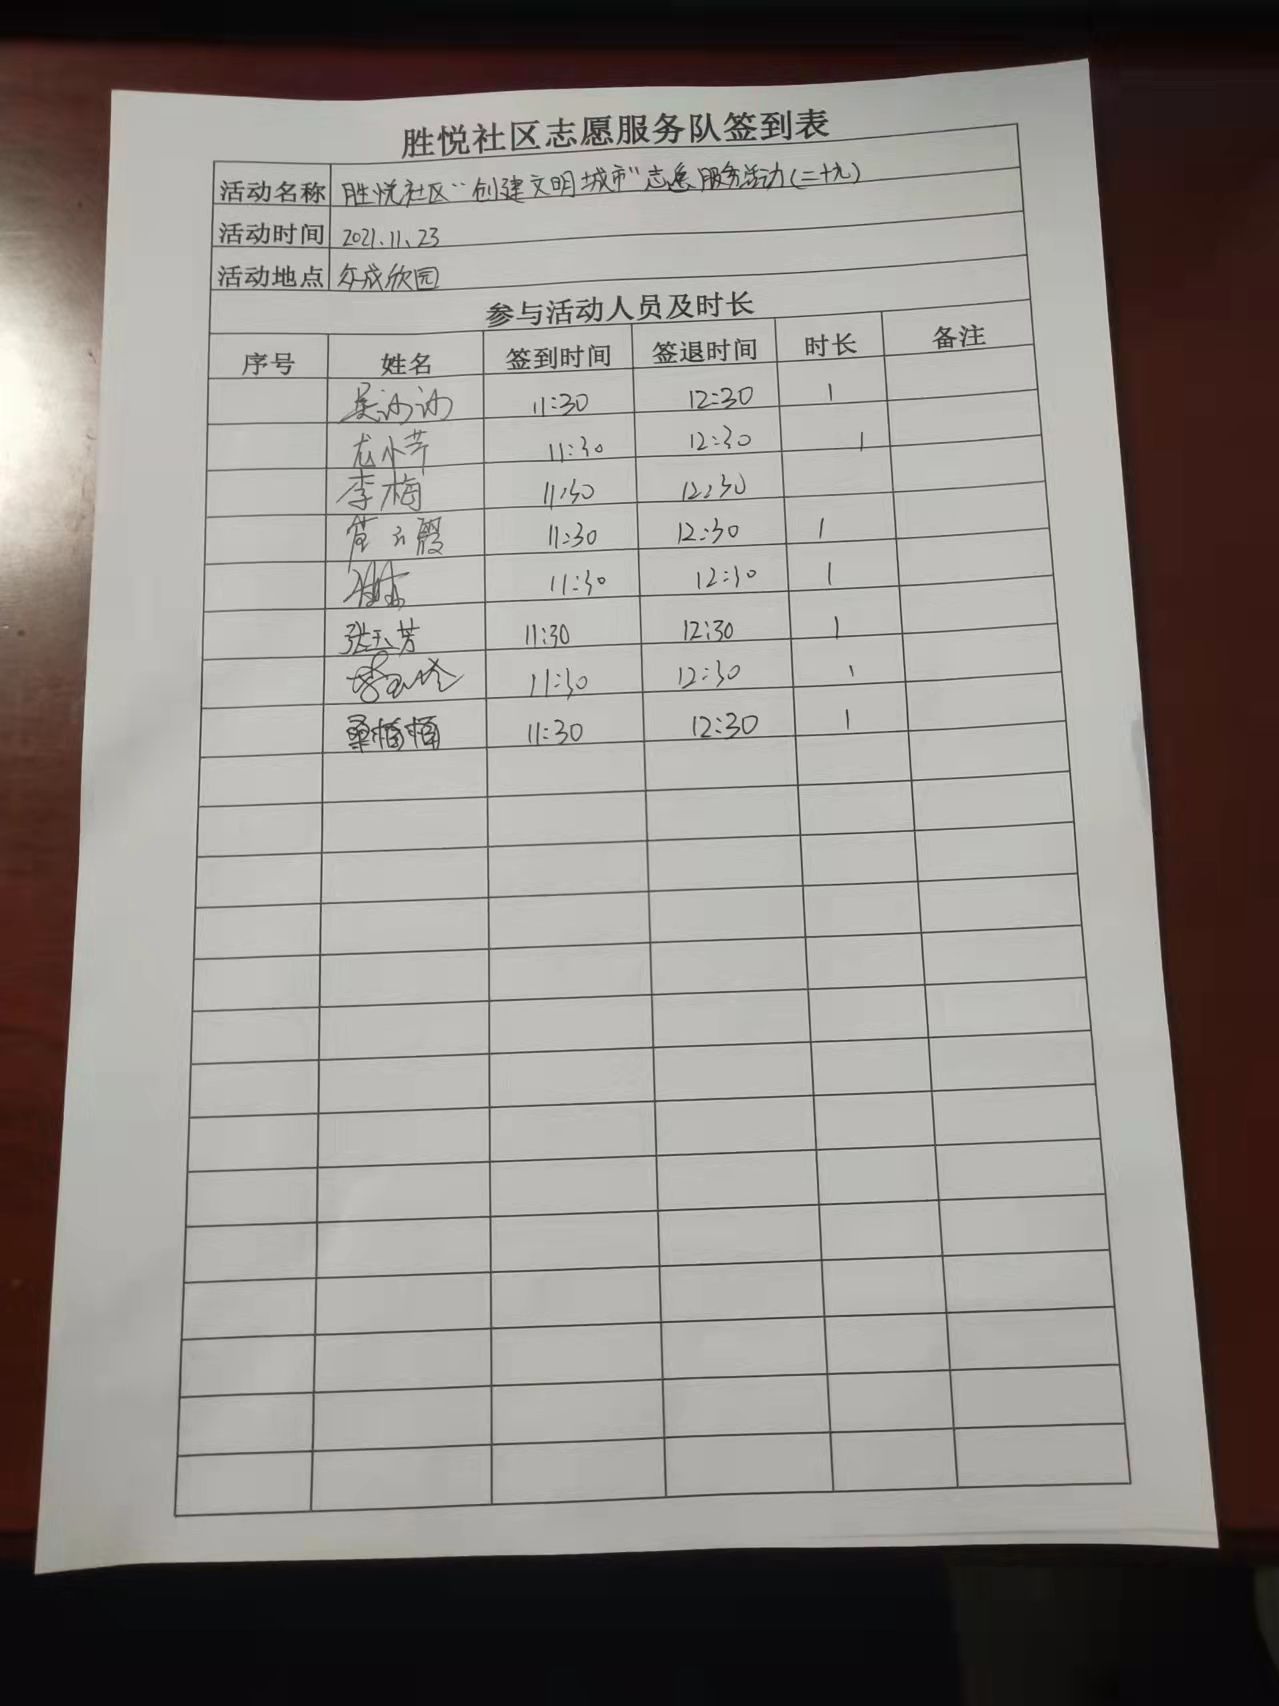 胜悦社区志愿服务队签到表
活动名称 胜悦社区“创建文明城市”志愿服务活动(二十九)
活动时间 2021.11.23
活动地点 欣园
参与活动人员及时长
序号 姓名 签到时间 签退时间 时长 备注
吴 11:30 12:30 1
尤小芹 11:30 12:30 1
李梅 11:30 12:30
霞 11:30 12:30 1
11:30 12:30 1
张玉芳 11:30 12:30 1
李 11:30 12:30 1
桑 11:30 12:30 1